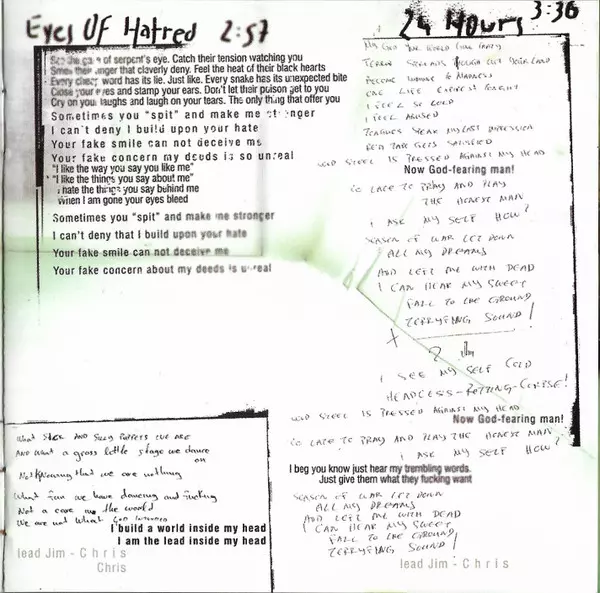 Eyes Of Hatred 2:57
See the gaze of serpent's eye. Catch their tension watching you
Smell their anger that claverly deny. Feel the heat of their black hearts
Every clever word has its lie. Just like. Every snake has its unexpected bite
Close your eyes and stamp your ears. Don't let their poison get to you
Cry on you, laughs and laugh on your tears. The only thing that offer you
Sometimes you "spit" and make me stronger
I can't deny I build upon your hate
Your fake smile can not deceive me
Your fake concern my deeds is so unreal
"I like the way you say you like me"
"I like the things you say about me"
I hate the things you say behind me
When I am gone your eyes bleed
Sometimes you "spit" and make me stronger
I can't deny that I build upon your hate
Your fake smile can not deceive me
Your fake concern about my deeds is unreal
What sick and silly puppets we are
And what a gross little stage we dance on
Not knowing that we are nothing
What fun we have dancing and fucking
Not a care in the world
We are not what God intended
I build a world inside my head
I am the lead inside my head
lead Jim - Chris
Chris
24 Hours 3:36
My God the world gone crazy
Terror spreads your land
Become immune to madness
One life
I feel so cold
I feel abused
last
Red tape gets satisfied
Cold steel is pressed against my head
Now God-fearing man!
To late to pray and play
the honest man
I ask my self how?
Season of war let down
all my dreams
And left me with dead
I can hear my sweet
fall to the ground
Terryfing sound!
I see my self cold
Headless-rotting-corpse!
Cold steel is pressed against my head
Now God-fearing man!
To late to pray and play the honest man
I ask my self how?
I beg you know just hear my trembling words.
Just give them what they fucking want
Season of war let down
all my dreams
And left me with dead
I can hear my sweet
fall to the ground
Terryfing sound!
lead Jim - Chris